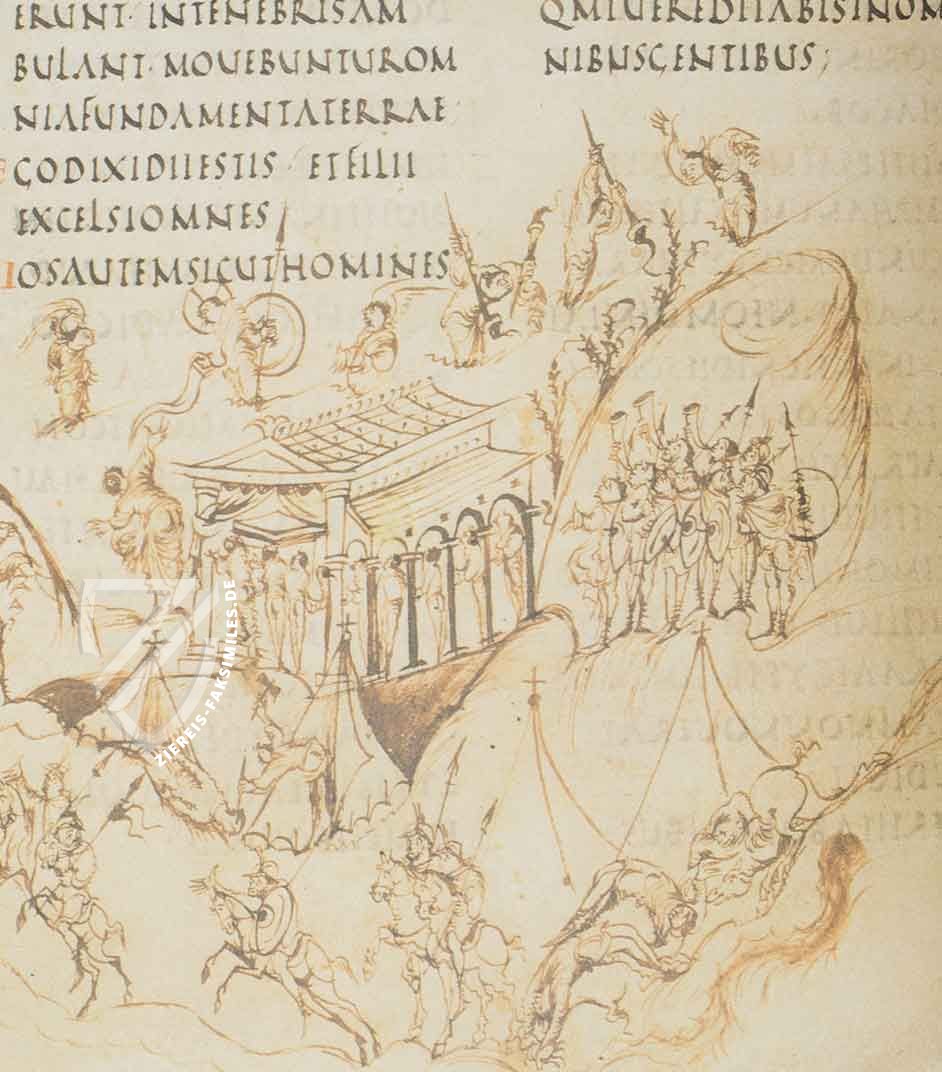 ERUNT· INTENEBRISAM
BULANT· MOUEBUNTUROM
NIAFUNDAMENTATERRAE
EGODIXIDIIESTIS · ETFILII
EXCELSIOMNES
UOSAUTEMSICUTHOMINES
QMTUHEREDITABISINOM
NIBUSGENTIBUS;
ZIEREIS-FAKSIMILES.DE